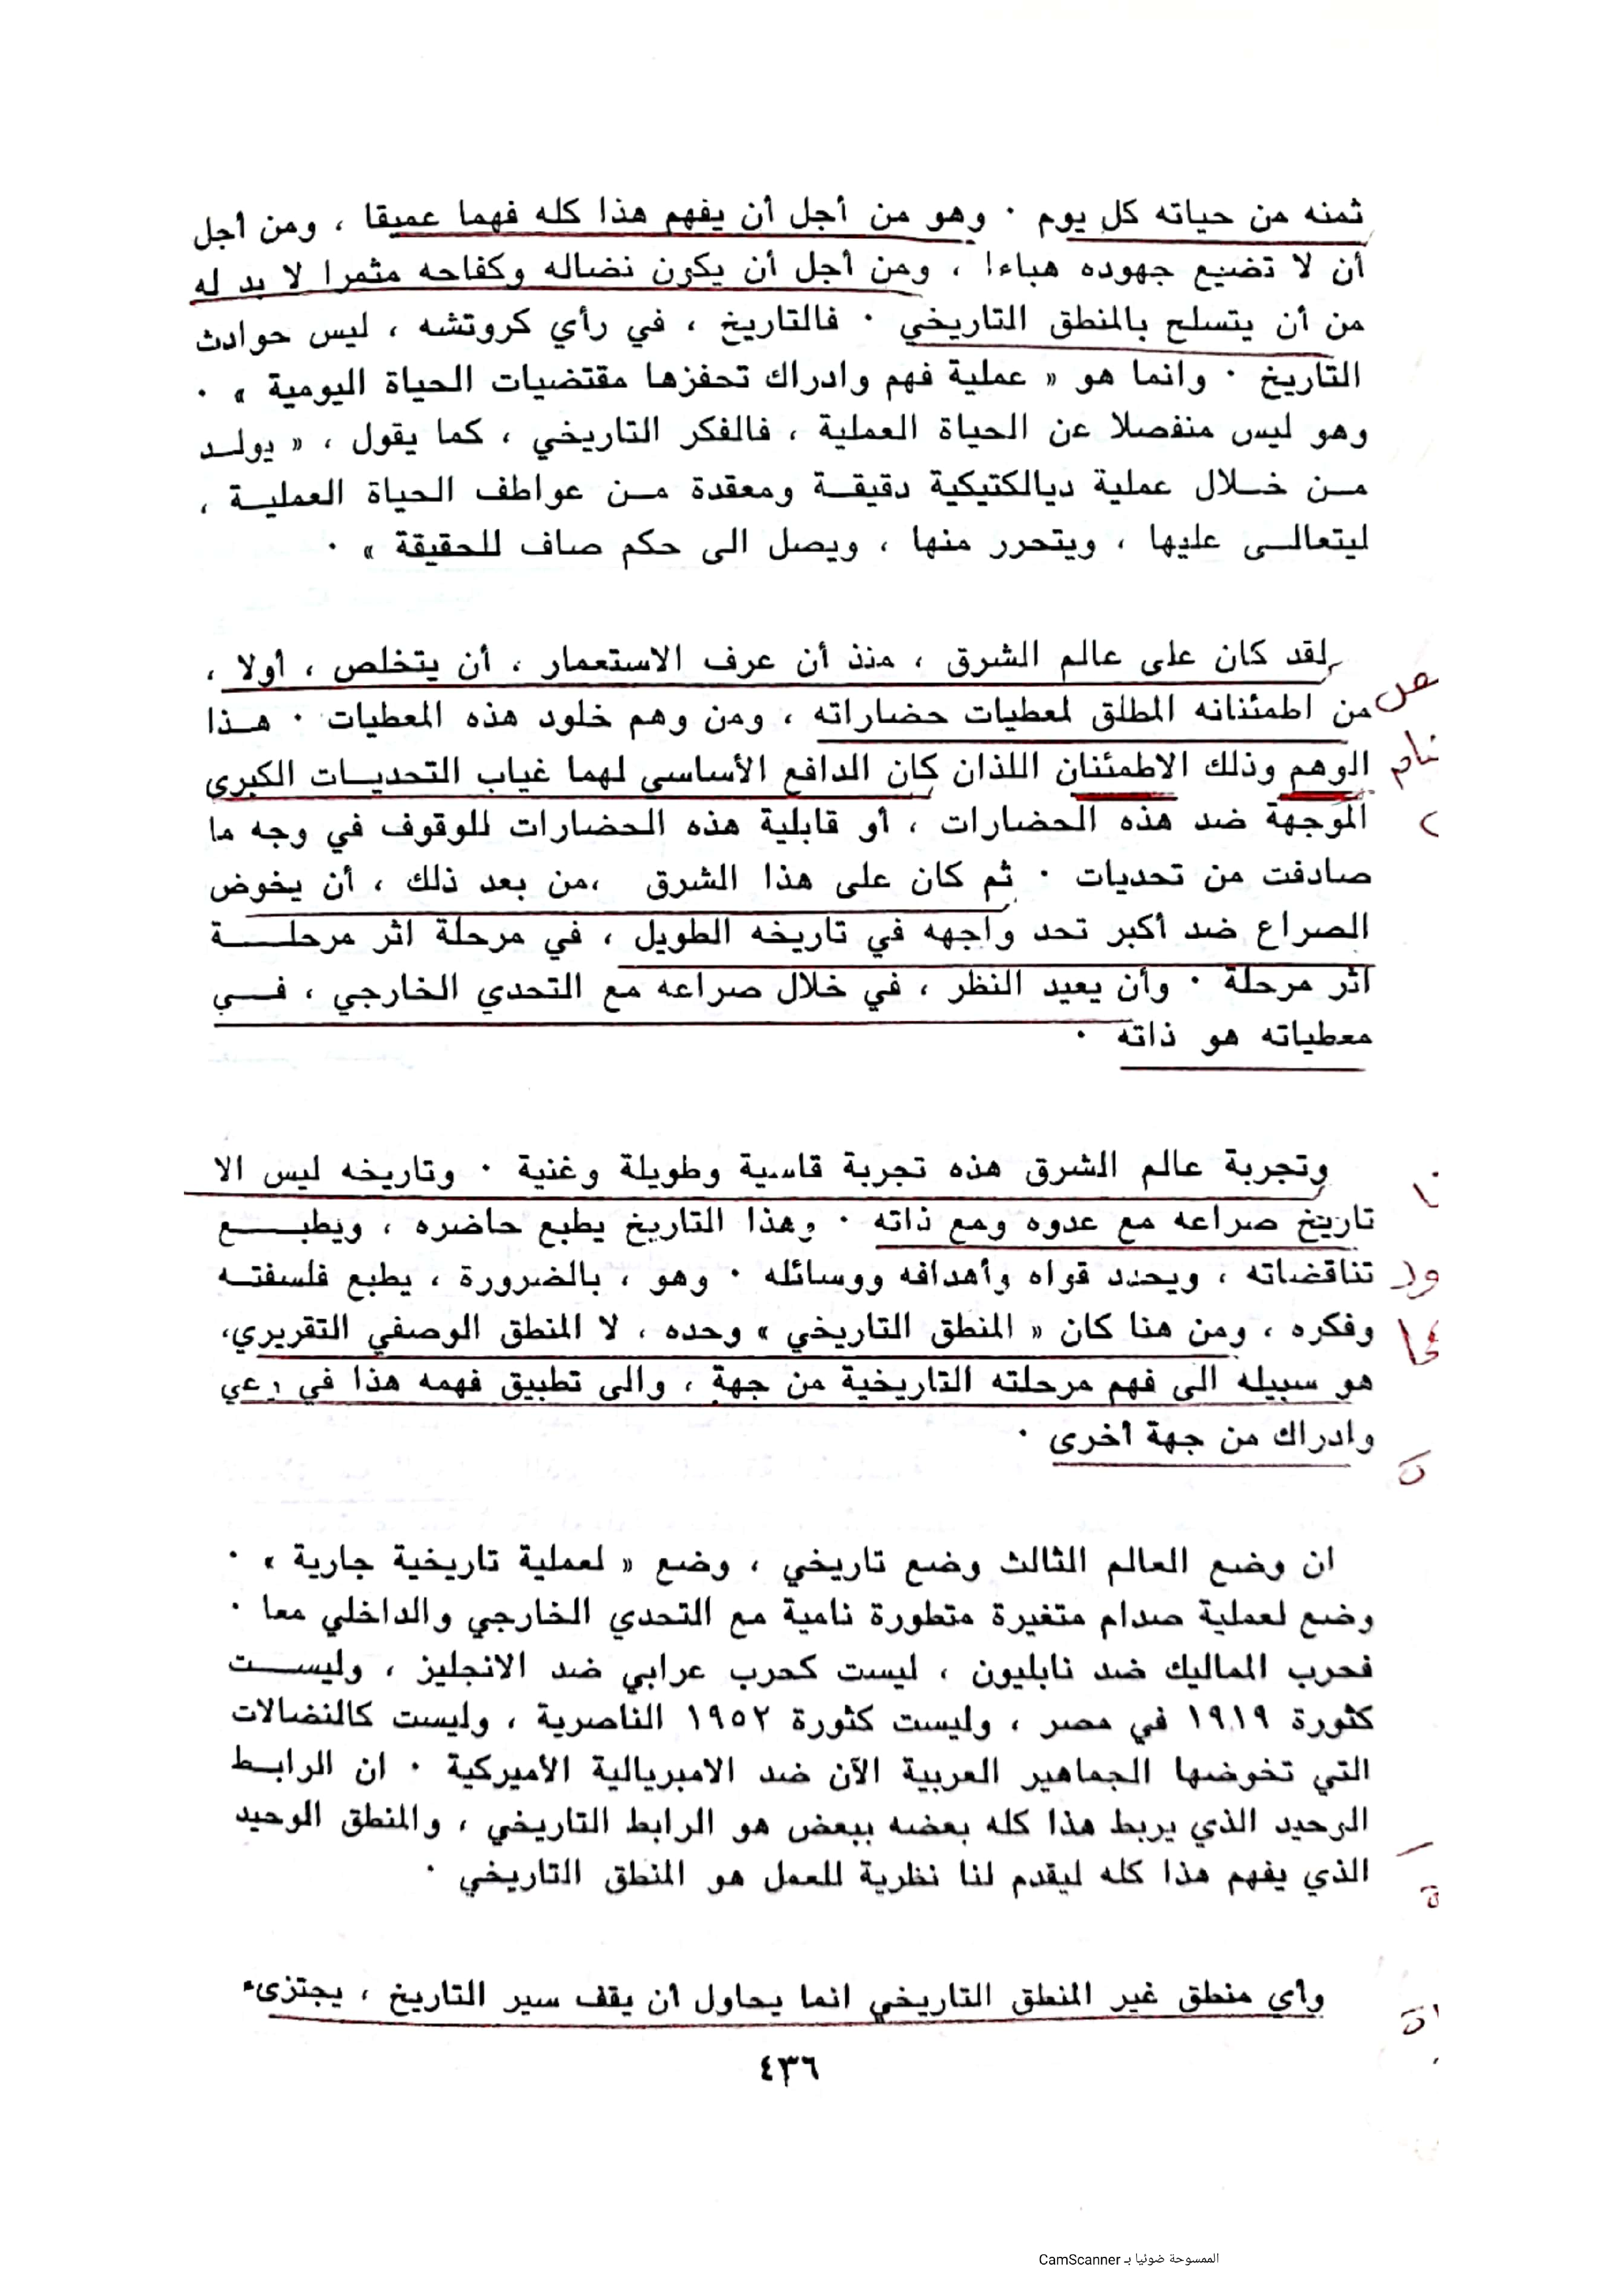 ثمنه من حياته كل يوم . وهو من أجل أن يفهم هذا كله فهما عميقا ، ومن أجل
أن لا تضيع جهوده هباءا ، ومن أجل أن يكون نضاله وكفاحه مثمرا لا بد له
من أن يتسلح بالمنطق التاريخي . فالتاريخ ، في رأي كروتشه ، ليس حوادث
التاريخ . وانما هو « عملية فهم وادراك تحفزها مقتضيات الحياة اليومية » .
وهو ليس منفصلا عن الحياة العملية ، فالفكر التاريخي ، كما يقول ، « يولد
من خلال عملية ديالكتيكية دقيقة ومعقدة من عواطف الحياة العملية ،
ليتعالى عليها ، ويتحرر منها ، ويصل الى حكم صاف للحقيقة » .
لقد كان على عالم الشرق ، منذ أن عرف الاستعمار ، أن يتخلص ، أولا ،
من اطمئنانه المطلق لمعطيات حضاراته ، ومن وهم خلود هذه المعطيات . هذا
الوهم وذلك الاطمئنان اللذان كان الدافع الأساسي لهما غياب التحديات الكبرى
الموجهة ضد هذه الحضارات ، أو قابلية هذه الحضارات للوقوف في وجه ما
صادفت من تحديات . ثم كان على هذا الشرق ،من بعد ذلك ، أن يخوض
الصراع ضد أكبر تحد واجهه في تاريخه الطويل ، في مرحلة اثر مرحلة
اثر مرحلة . وأن يعيد النظر ، في خلال صراعه مع التحدي الخارجي ، في
معطياته هو ذاته .
وتجربة عالم الشرق هذه تجربة قاسية وطويلة وغنية . وتاريخه ليس الا
تاريخ صراعه مع عدوه ومع ذاته . وهذا التاريخ يطبع حاضره ، ويطبع
تناقضاته ، ويحدد قواه وأهدافه ووسائله . وهو ، بالضرورة ، يطبع فلسفته
وفكره ، ومن هنا كان « المنطق التاريخي » وحده ، لا المنطق الوصفي التقريري،
هو سبيله الى فهم مرحلته التاريخية من جهة ، والى تطبيق فهمه هذا في وعي
وادراك من جهة أخرى .
ان وضع العالم الثالث وضع تاريخي ، وضع « لعملية تاريخية جارية » .
وضع لعملية صدام متغيرة متطورة نامية مع التحدي الخارجي والداخلي معا .
فحرب المماليك ضد نابليون ، ليست كحرب عرابي ضد الانجليز ، وليست
كثورة ١٩١٩ في مصر ، وليست كثورة ١٩٥٢ الناصرية ، وليست كالنضالات
التي تخوضها الجماهير العربية الآن ضد الامبريالية الأميركية . ان الرابط
الوحيد الذي يربط هذا كله بعضه ببعض هو الرابط التاريخي ، والمنطق الوحيد
الذي يفهم هذا كله ليقدم لنا نظرية للعمل هو المنطق التاريخي .
وأي منطق غير المنطق التاريخي انما يحاول أن يقف سير التاريخ ، يجتزىء
٤٣٦
الممسوحة ضوئيا بـ CamScanner